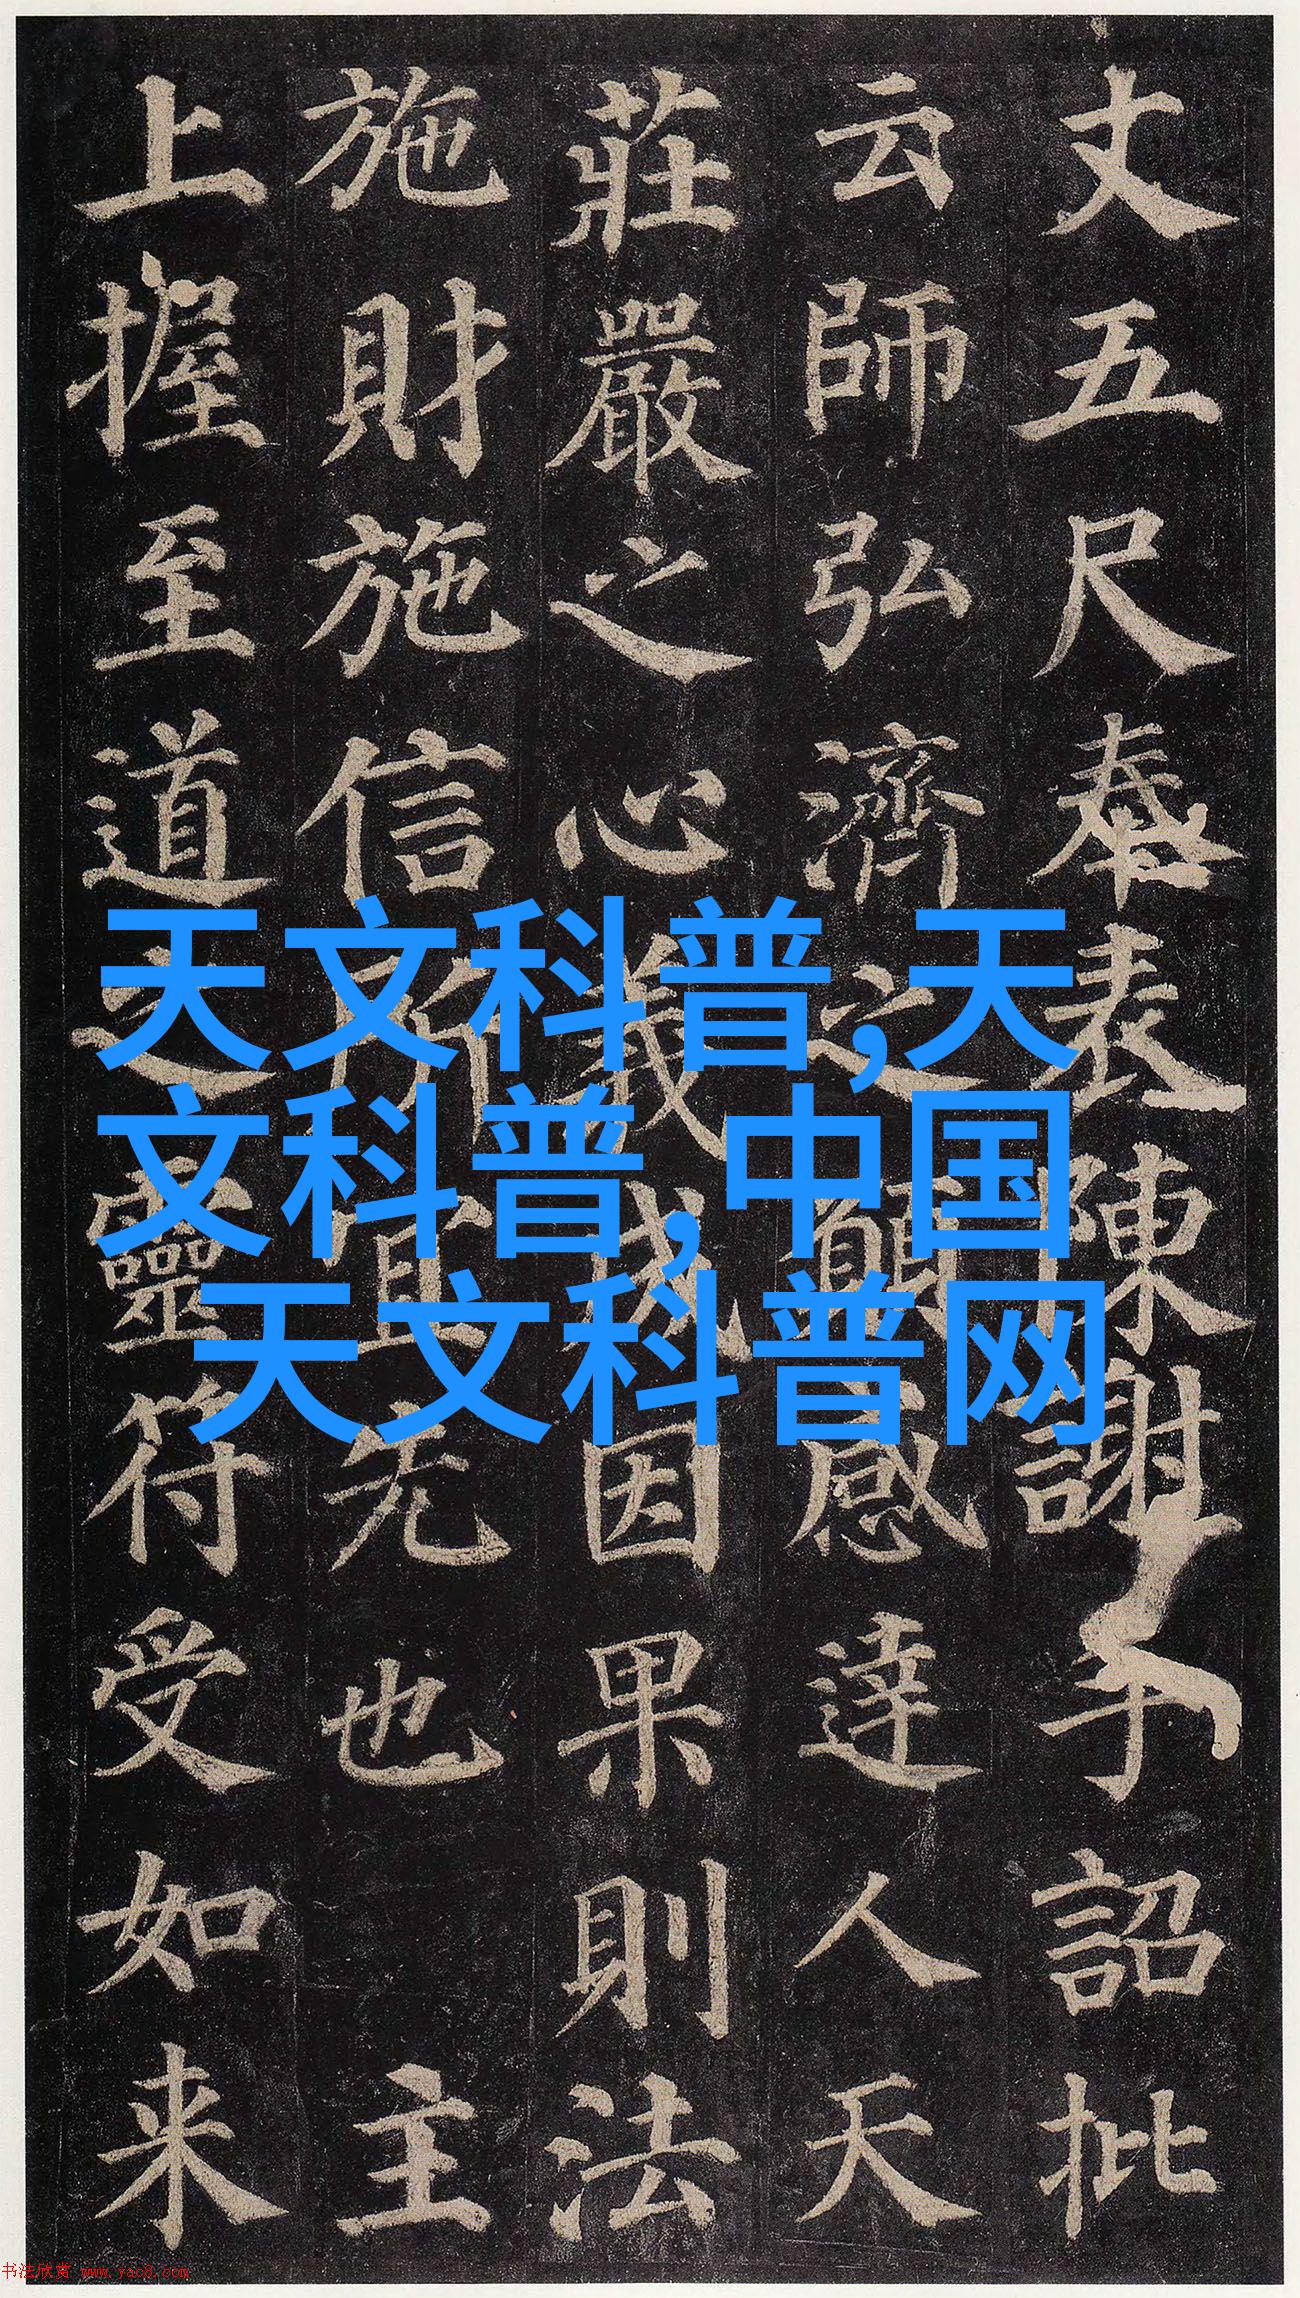 丈五尺奉表陳謝手詔批
云師弘濟之願感達人天
莊嚴之心義成因果則法
施財施信所宜先也 主
上握至道之靈符受如来
天文科普,天
文科普,中国
天文科普网
书法欣赏 www.yac8.com